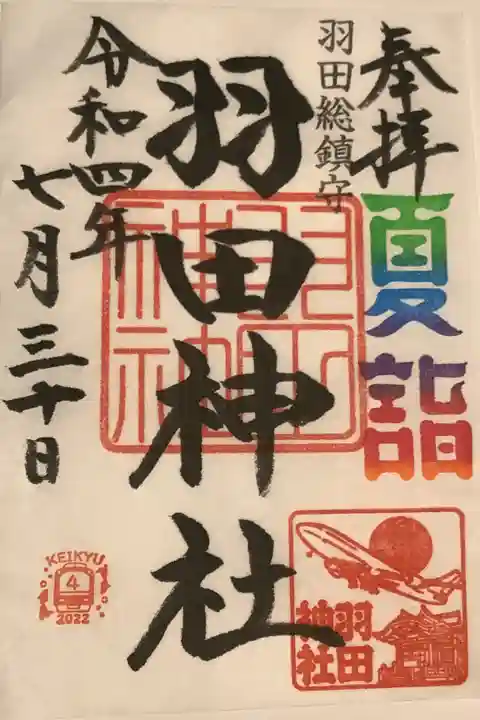 奉拝
夏詣
羽田総鎮守
羽田神社
羽田神社
令和四年
七月三十日
羽田
神社
KEIKYU
4
2022